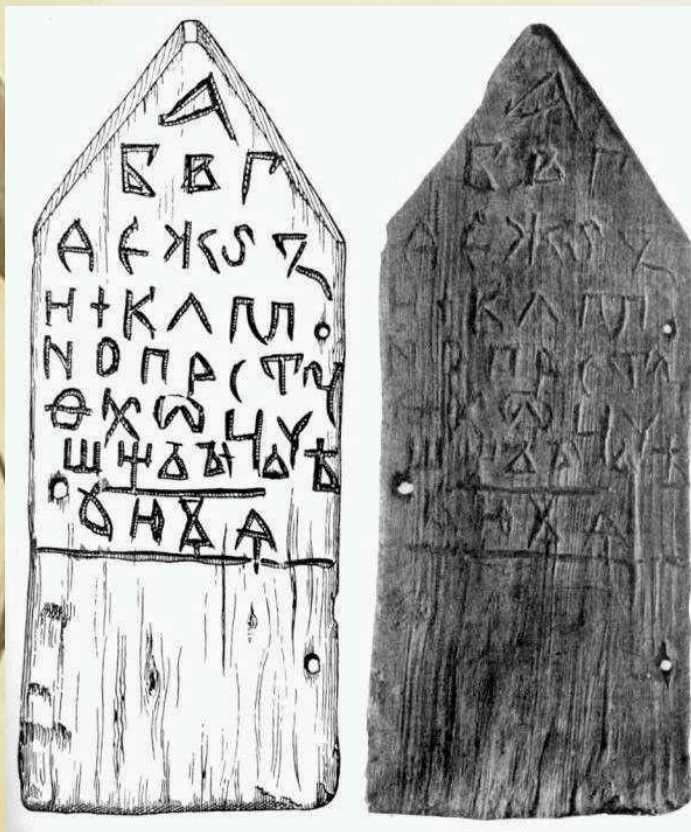 А
Б В Г
Д Е Ж Ѕ З
Н І К Л М
N О П Р С Т Ꙋ
Ѳ Х Ѿ Ц Ч
Ш Щ Ъ Ы Ь Ѣ
Ꙋ Н Ѫ Ѧ